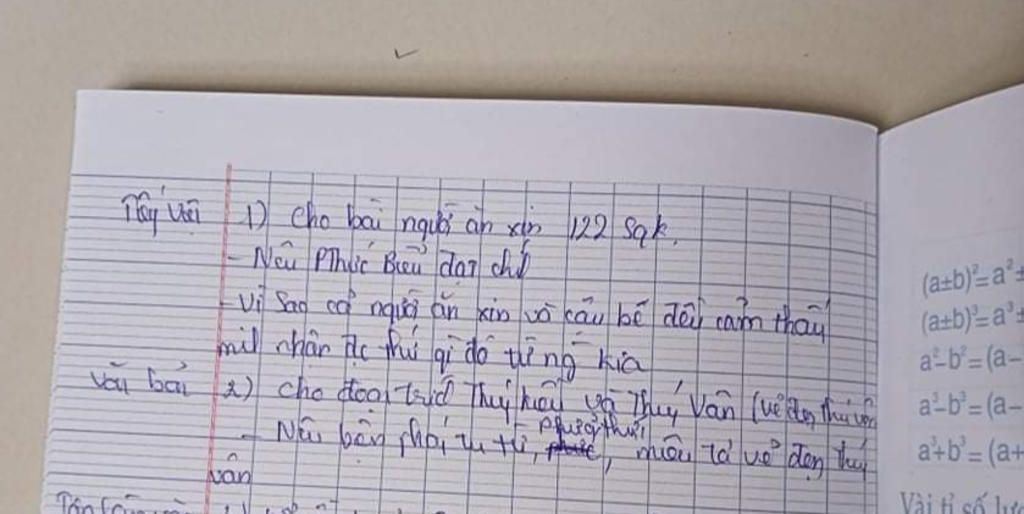 Tiếng Việt 1) Cho bài người ăn xin 122 sgk.
- Nêu Pthức Biểu đạt chí
- Vì sao cả người ăn xin và cậu bé đều cảm thấy
mìh nhận đc thứ gì đó từ ng kia
Văn bản 2) Cho đoạn trích Thuý Kiều và Thuý Vân (vẻ đẹp thuý vân
- Nêu biện pháp tu từ, phươg thức, miêu tả vẻ đẹp thuý
vân
(a±b)²=a²±
(a±b)³=a³±
a²-b²=(a-
a³-b³=(a-
a³+b³=(a+
Vài tỉ số lượ